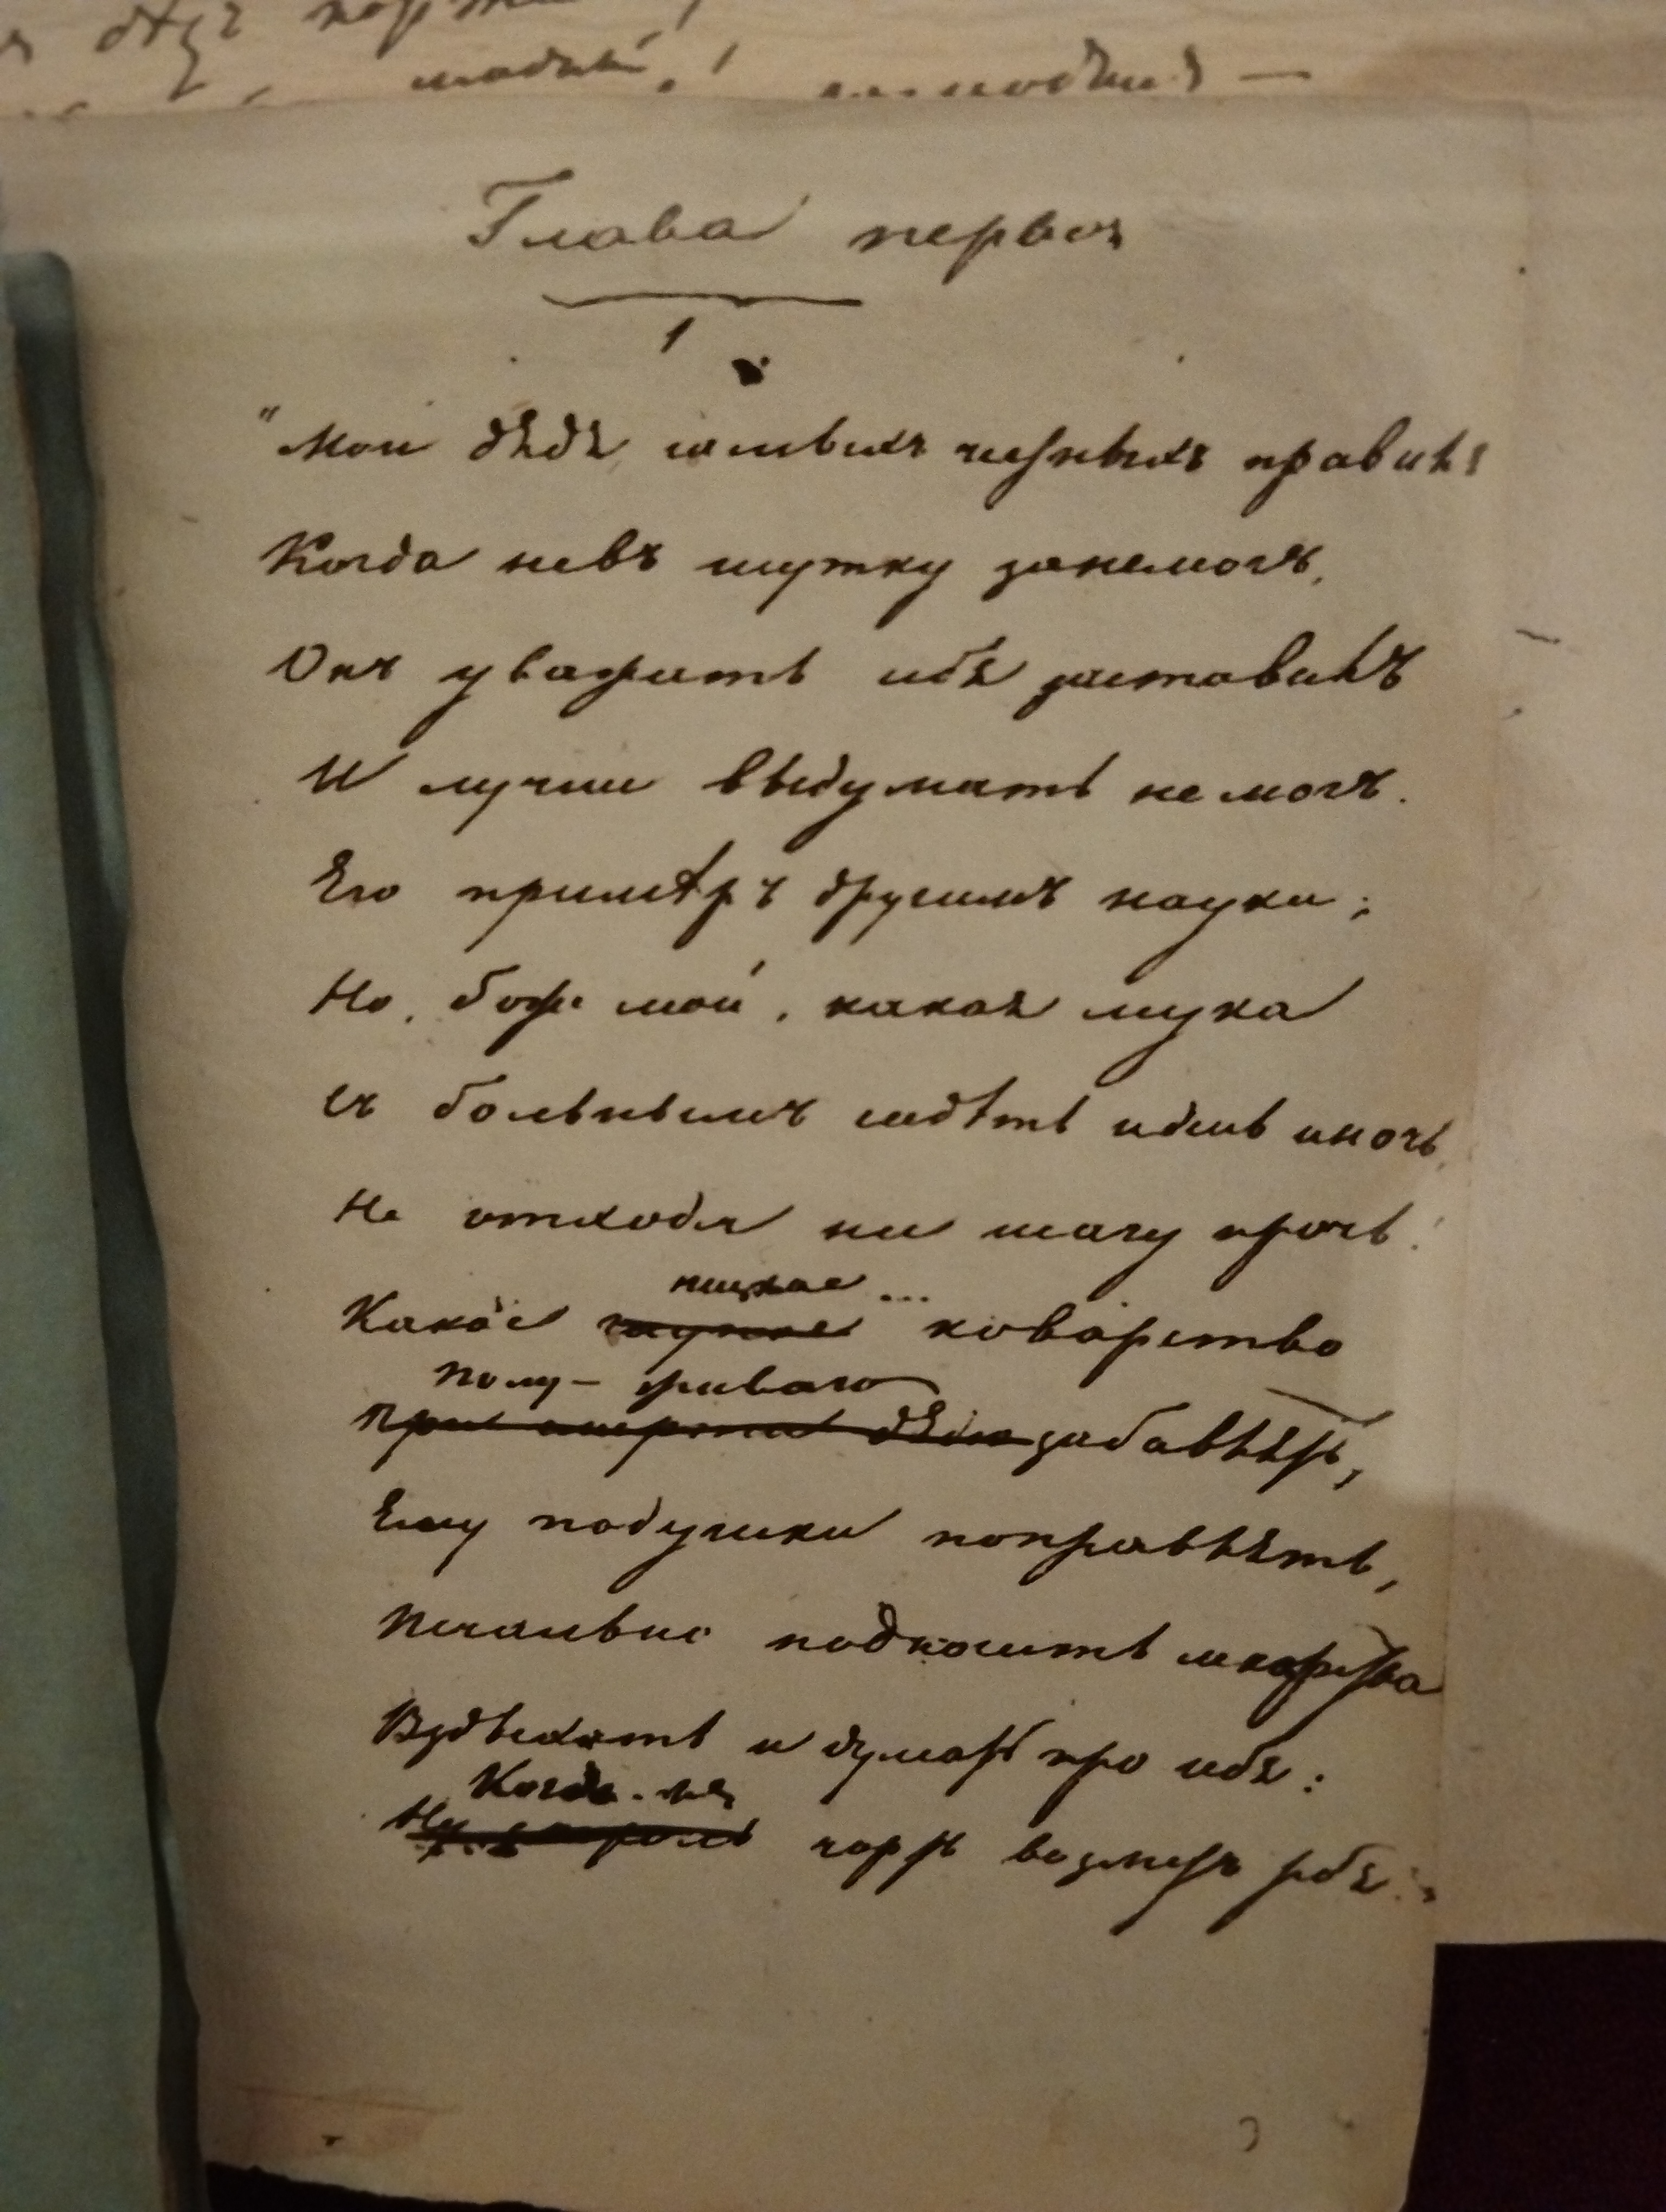 Глава первая
1
"Мои дядя самыхъ честныхъ правилъ
Когда невъ шутку занемогъ,
Онъ уважать себя заставилъ
И лучше выдумать не могъ.
Его примѣръ другимъ наука;
Но, боже мой, какая мука
Съ больнымъ сидѣть идень иночь,
Не отходя ни шагу прочь!
низкое ...
Какое коварство
Полу-живаго
При смерти дядю забавлять,
Ему подушки поправлять,
Печально подносить лекарства
Вздыхать и думать про себя:
Когда-же
чортъ возметъ тебя